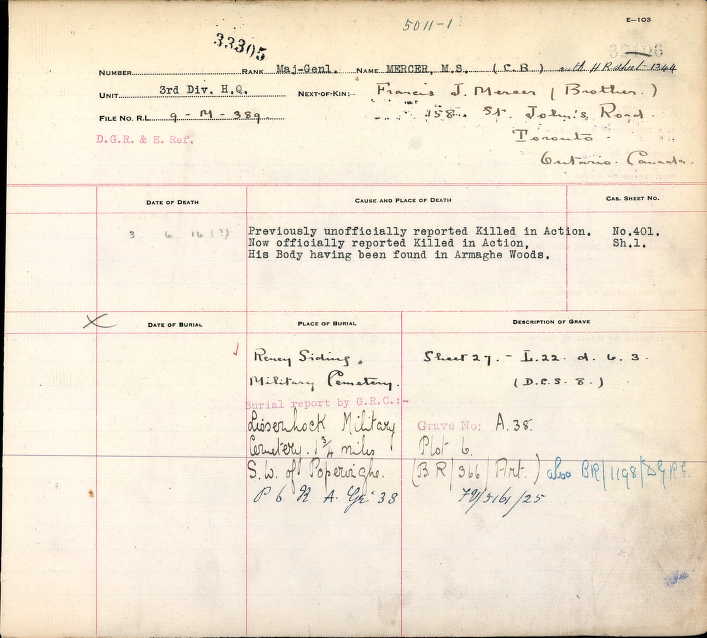 E-103
5011-1
33305
NUMBER RANK Maj-Genl. NAME MERCER, M.S. (C.B.) with H.R. sheet 1344
UNIT 3rd Div. H.Q. NEXT-OF-KIN:- Francis J. Mercer (Brother.)
FILE NO. R.L. 9 - M - 389 158 St. John's Road.
D.G.R. & E. Ref. Toronto
Ontario. Canada.
DATE OF DEATH CAUSE AND PLACE OF DEATH CAS. SHEET NO.
3 6 16 (?) Previously unofficially reported Killed in Action. No.401.
Now officially reported Killed in Action, Sh.1.
His Body having been found in Armaghe Woods.
X DATE OF BURIAL PLACE OF BURIAL DESCRIPTION OF GRAVE
Reney Siding, Sheet 27. - L.22. d. 6. 3.
Military Cemetery. (D.C.S. 8.)
Burial report by G.R.C.:-
Lissenhock Military Grave No: A.38.
Cemetery. 1 3/4 miles Plot 6.
S.W. of Poperinghe. (BR/366/Art.) also BR/1198/D.G.R.E.
P 6 R A. Gr: 38